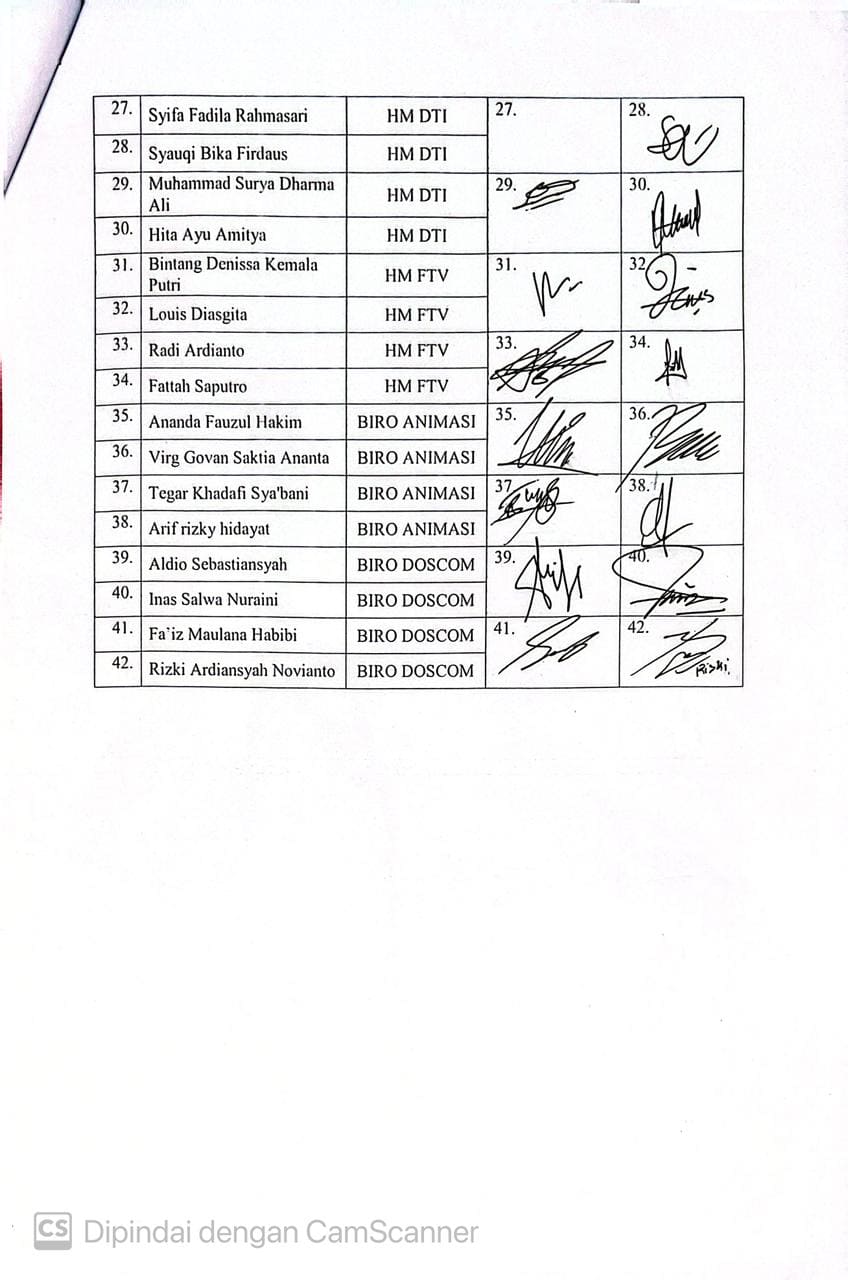 27. Syifa Fadila Rahmasari HM DTI 27. 28.
28. Syauqi Bika Firdaus HM DTI
29. Muhammad Surya Dharma
Ali HM DTI 29. 30.
30. Hita Ayu Amitya HM DTI
31. Bintang Denissa Kemala
Putri HM FTV 31. 32
32. Louis Diasgita HM FTV
33. Radi Ardianto HM FTV 33. 34.
34. Fattah Saputro HM FTV
35. Ananda Fauzul Hakim BIRO ANIMASI 35. 36.
36. Virg Govan Saktia Ananta BIRO ANIMASI
37. Tegar Khadafi Sya'bani BIRO ANIMASI 37 38.
38. Arif rizky hidayat BIRO ANIMASI
39. Aldio Sebastiansyah BIRO DOSCOM 39. 40.
40. Inas Salwa Nuraini BIRO DOSCOM
41. Fa`iz Maulana Habibi BIRO DOSCOM 41. 42.
42. Rizki Ardiansyah Novianto BIRO DOSCOM Rizki.
CS Dipindai dengan CamScanner